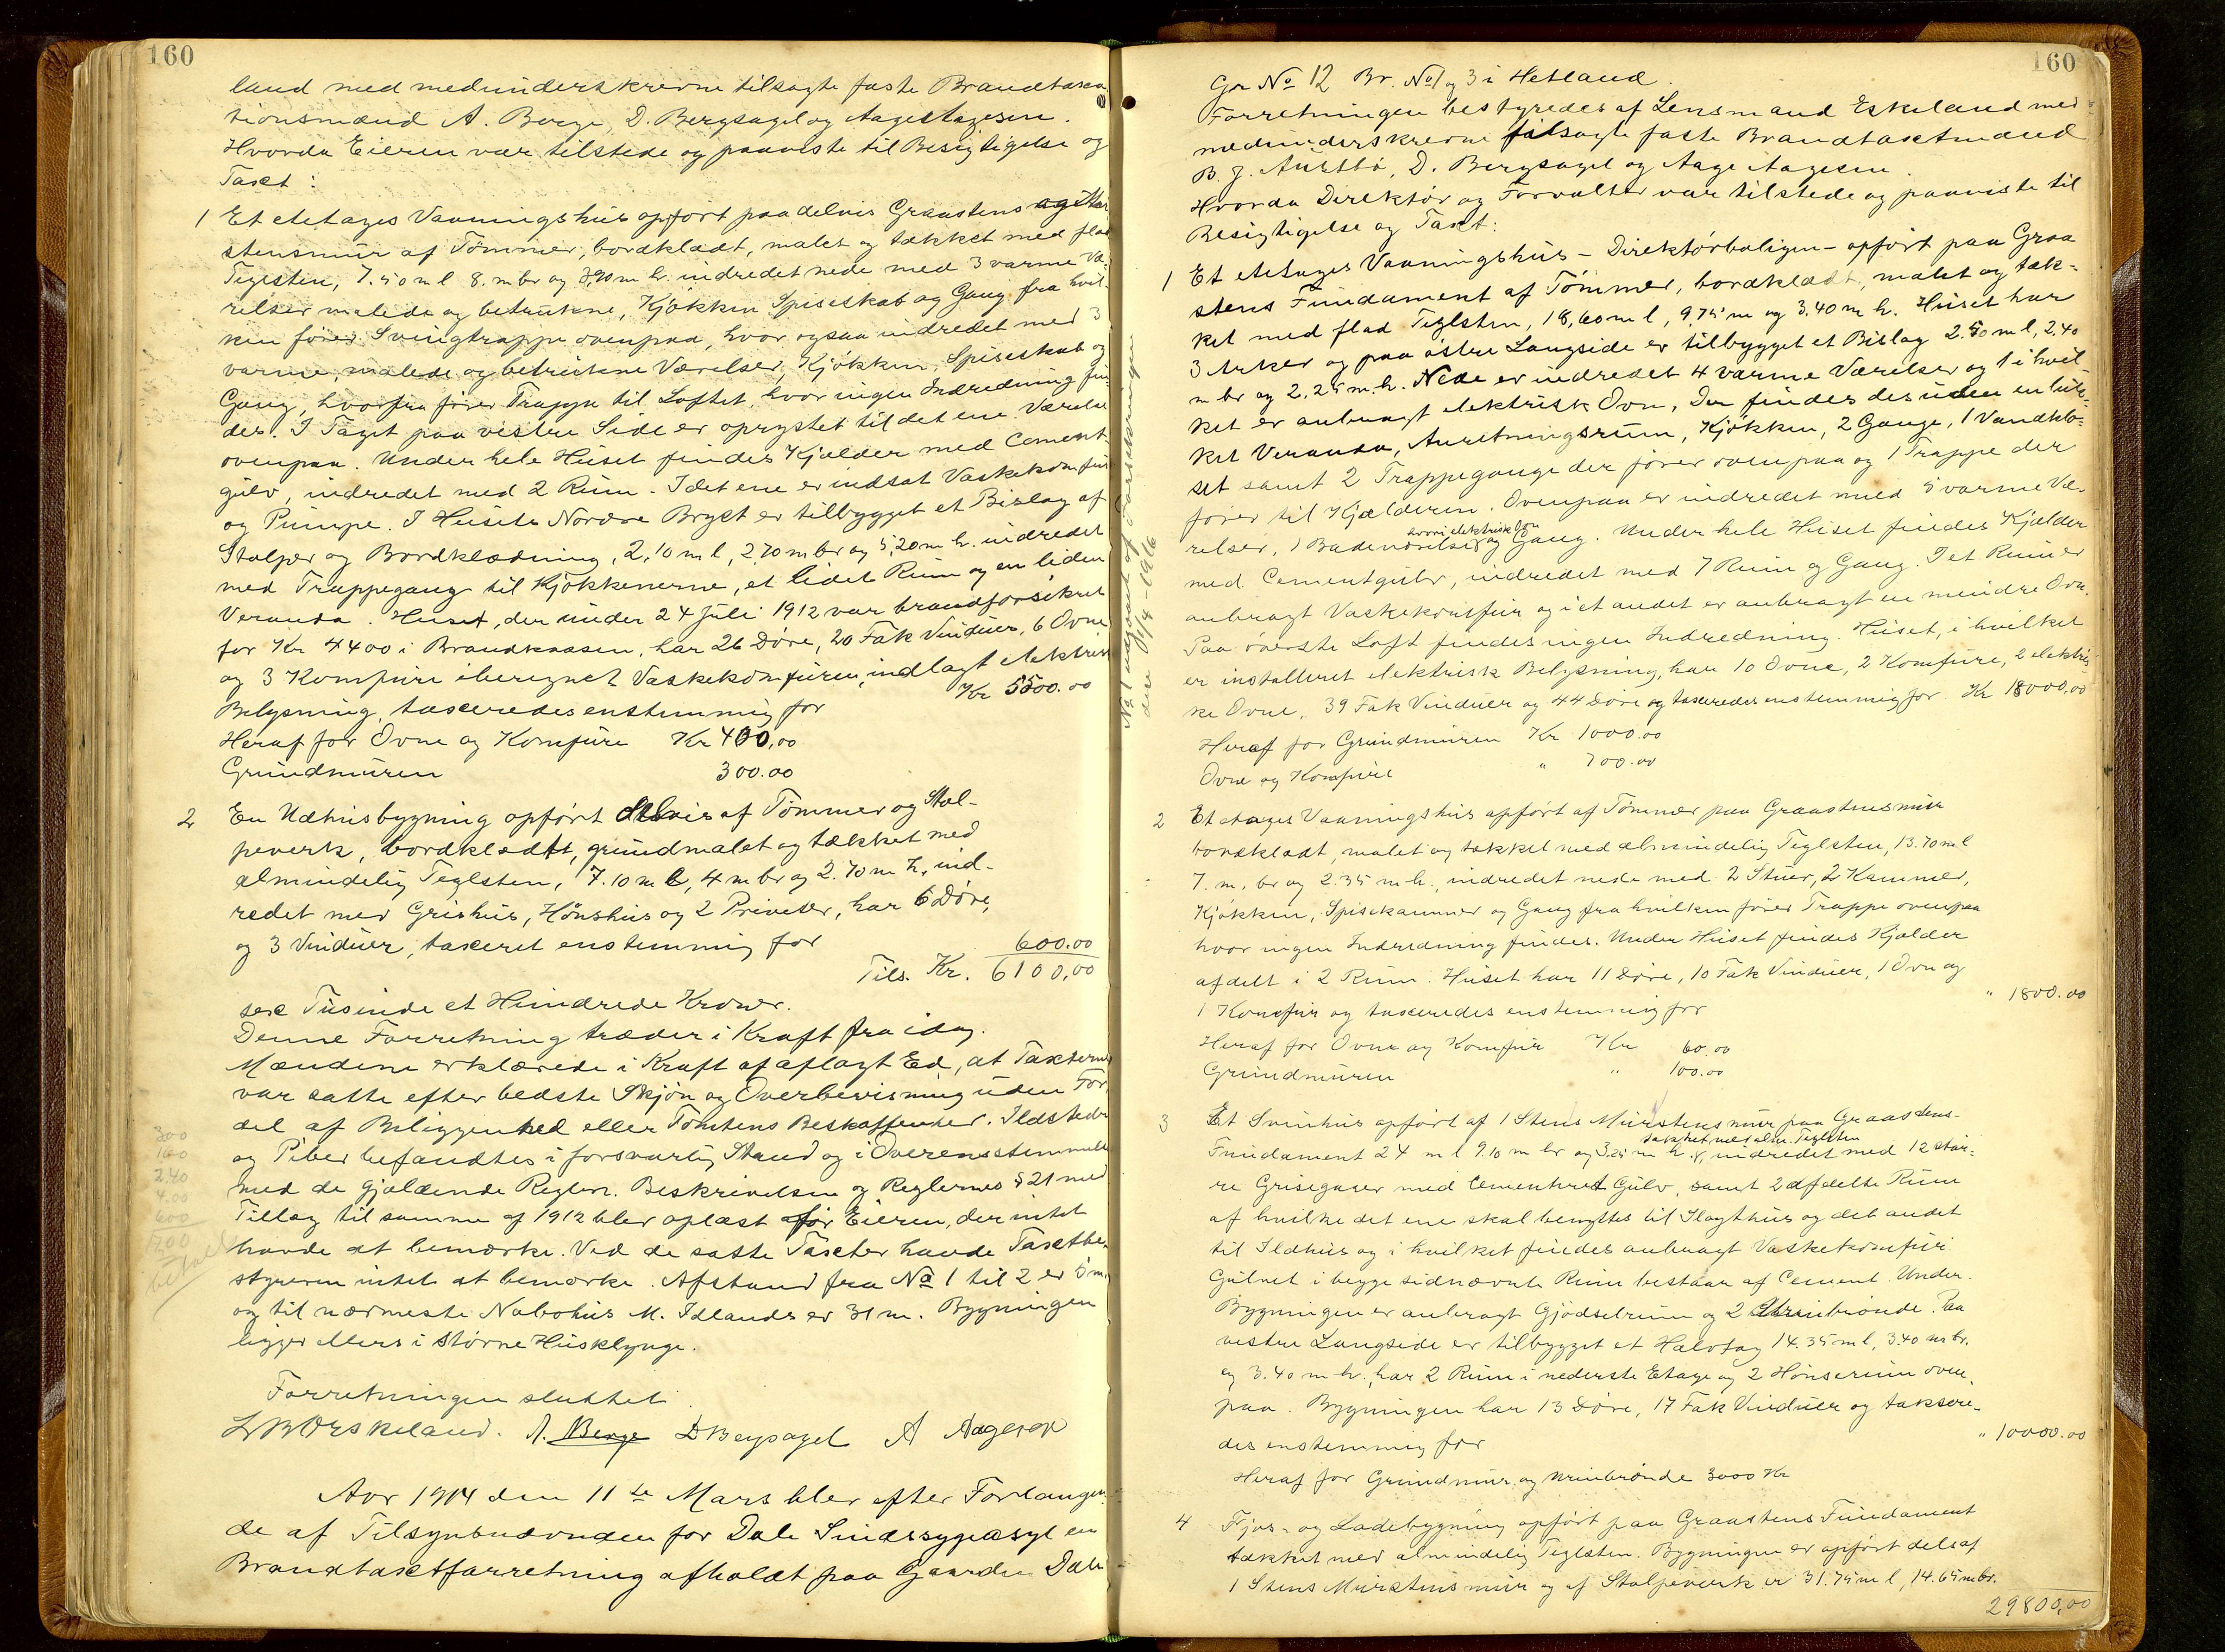 160
land med medunderskrevne tilsagte faste Brandtaxa
tionsmænd A. Berge, D. Bergsagel og Aage Aagesen.
Hvorda Eieren var tilstede og paaviste til Besigtigelse og
Taxt:
1 Et etetages Vaaningshus opført paa delvis Graastens og Mur
stensmur af Tømmer, bordklædt, malet og tækket med flad
Teglsten, 7.50 m l 8. m br og 3,90 m h. indredet nede med 3 varme Væ-
relser malede og betrukne, Kjøkken Spiseskab og Gang fra hvil-
ken fører Svingtrappe ovenpaa, hvor ogsaa indredet med 3
varme, malede og betrukne Værelser, Kjøkken, Spiseskab og
Gang, hvorfra fører Trappe til Loftet, hvor ingen Indredning fin-
des. I Taget paa vestre Side er oprystet til det ene Værelse
ovenpaa. Under hele Huset findes Kjælder med Cement-
gulv, indredet med 2 Rum. I det ene er indsat Vaskekomfur
og Pumpe. I Husets Nordre Bryst er tilbygget et Bislag af
Stolper og Bordklædning, 2,10 m l, 2,70 m br og 5,20 m h. indredet
med Trappegang til Kjøkkenerne, et lidet Rum og en liden
Veranda. Huset, der under 24 Juli 1912 var brandforsikret
for Kr 4400 i Brandkassen, har 26 Døre, 20 Fak Vinduer, 6 Ovne
og 3 Komfure iberegnet Vaskekomfuren, indlagt elektrisk
Belysning, taxeredes enstemmig for Kr 5500.00
Heraf for Ovne og Komfure Kr 400,00
Grundmuren 300.00
2 En Udhusbygning opført delvis af Tømmer og Stol-
peverk, bordklædt, grundmalet og tækket med
almindelig Teglsten, 7.10 m l, 4 m br og 2.70 m h, ind-
redet med Grishus, Hønshus og 2 Priveter, har 6 Døre,
og 3 Vinduer, taxeret enstemmig for 600.00
Tils. Kr. 6100,00
sex Tusinde et Hundrede Kroner.
Denne Forretning træder i Kraft fra idag.
Mændene erklærede i Kraft af aflagt Ed, at Taxterne
var satte efter bedste Skjøn og Overbevisning uden For
del af Beliggenhed eller Tomtens Beskaffenhed. Ildsteder
og Piber befandtes i forsvarlig Stand og i Overensstemmelse
med de gjældende Regler. Beskrivelsen og Reglernes § 21 med
Tillæg til samme af 1912 blev oplæst for Eieren, der intet
havde at bemærke. Ved de satte Taxter havde Taxtbe-
styreren intet at bemærke. Afstand fra No 1 til 2 er 5 m.
og til nærmeste Nabohus M. Idlands er 31 m. Bygningen
ligger ellers i større Husklynge.
300
100
2.40
4.00
600
1700
betalt
Forretningen sluttet.
A. Berge D Bergsagel A Aagesen
Aar 1914 den 11te Mars blev efter Forlangen-
de af Tilsynsnævnden for Dale Sindssygeasyl en
Brandtaxtforretning afholdt paa Gaarden Dale
No 1 udgaaet af Forsikringen
den 1/4-1916
160
Gr No 12 Br. No 1 og 3 i Hetland.
Forretningen bestyredes af Lensmand Eskeland med
medunderskrevne tilsagte faste Brandtaxtmænd
B. J. Austbø, D. Bergsagel og Aage Aagesen.
Hvorda Direktør og Forvalter var tilstede og paaviste til
Besigtigelse og Taxt:
1 Et etetages Vaaningshus - Direktørboligen - opført paa Graa
stens Fundament af Tømmer, bordklædt, malet og tæk-
ket med flad Teglsten, 18,60 m l, 9,75 m og 3.40 m h. Huset har
3 Arker og paa østre Langside er tilbygget et Bislag 2.50 m l, 2.40
m br og 2,25 m h. Nede er indredet 4 varme Værelser og 1 i hvil-
ket er anbragt elektrisk Ovn, Der findes desuden en luk-
ket Veranda, Anretningsrum, Kjøkken, 2 Gange, 1 Vandklo-
set samt 2 Trappegange der fører ovenpaa og 1 Trappe der
fører til Kjælderen. Ovenpaa er indredet med 5 varme Væ-
hvori elektrisk Ovn
relser, 1 Badeværelse og Gang. Under hele Huset findes Kjælder
med Cementgulv, indredet med 7 Rum og Gang. I et Rum er
anbragt Vaskekomfur og i et andet er anbragt en mindre Ovn.
Paa øverste Loft findes ingen Indredning. Huset, i hvilket
er installeret elektrisk Belysning, har 10 Ovne, 2 Komfure, 2 elektris-
ke Ovne, 39 Fak Vinduer og 44 Døre og taxeredes enstemmig for Kr 18000,00
Heraf for Grundmuren Kr 1000.00
Ovne og Komfure " 700.00
2 Et etages Vaaningshus opført af Tømmer paa Graastensmur
bordklædt, malet og tækket med almindelig Teglsten, 13.70 m l
7. m. br og 2.35 m h., indredet nede med 2 Stuer, 2 Kammer,
Kjøkken, Spisekammer og Gang fra hvilken fører Trappe ovenpaa
hvor ingen Indredning findes. Under Huset findes Kjælder
afdelt i 2 Rum. Huset har 11 Døre, 10 Fak Vinduer, 1 Ovn og
1 Komfur og taxeredes enstemmig for " 1800.00
Heraf for Ovne og Komfur Kr 60.00
Grundmuren " 100.00
3 Et Svinhus opført af 1 Stens Murstensmur paa Graastens-
tækket med alm. Teglsten
Fundament 24 m l 9.10 m br og 3,25 m h., indredet med 12 stør-
re Grisegarer med Cementeret Gulv, samt 2 afdelte Rum
af hvilke det ene skal benyttes til Slagthus og det andet
til Ildhus og i hvilket findes anbragt Vaskekomfur.
Gulvet i begge sidnævnte Rum bestaar af Cement. Under
Bygningen er anbragt Gjødselrum og 2 Urinbrønde. Paa
vestre Langside er tilbygget et Halvtag 14.35 m l, 3.40 m br.
og 3.40 m h., har 2 Rum i nederste Etage og 2 Hønserum oven-
paa. Bygningen har 13 Døre, 17 Fak Vinduer og taksere-
des enstemmig for " 10000.00
Heraf for Grundmur og Urinbrønde 3000 Kr
4 Fjøs- og Ladebygning opført paa Graastens Fundament
tækket med almindelig Teglsten. Bygningen er opført dels af
1 Stens Murstensmur og af Stolpeverk er 31.75 m l, 14.65 m br.
29800,00